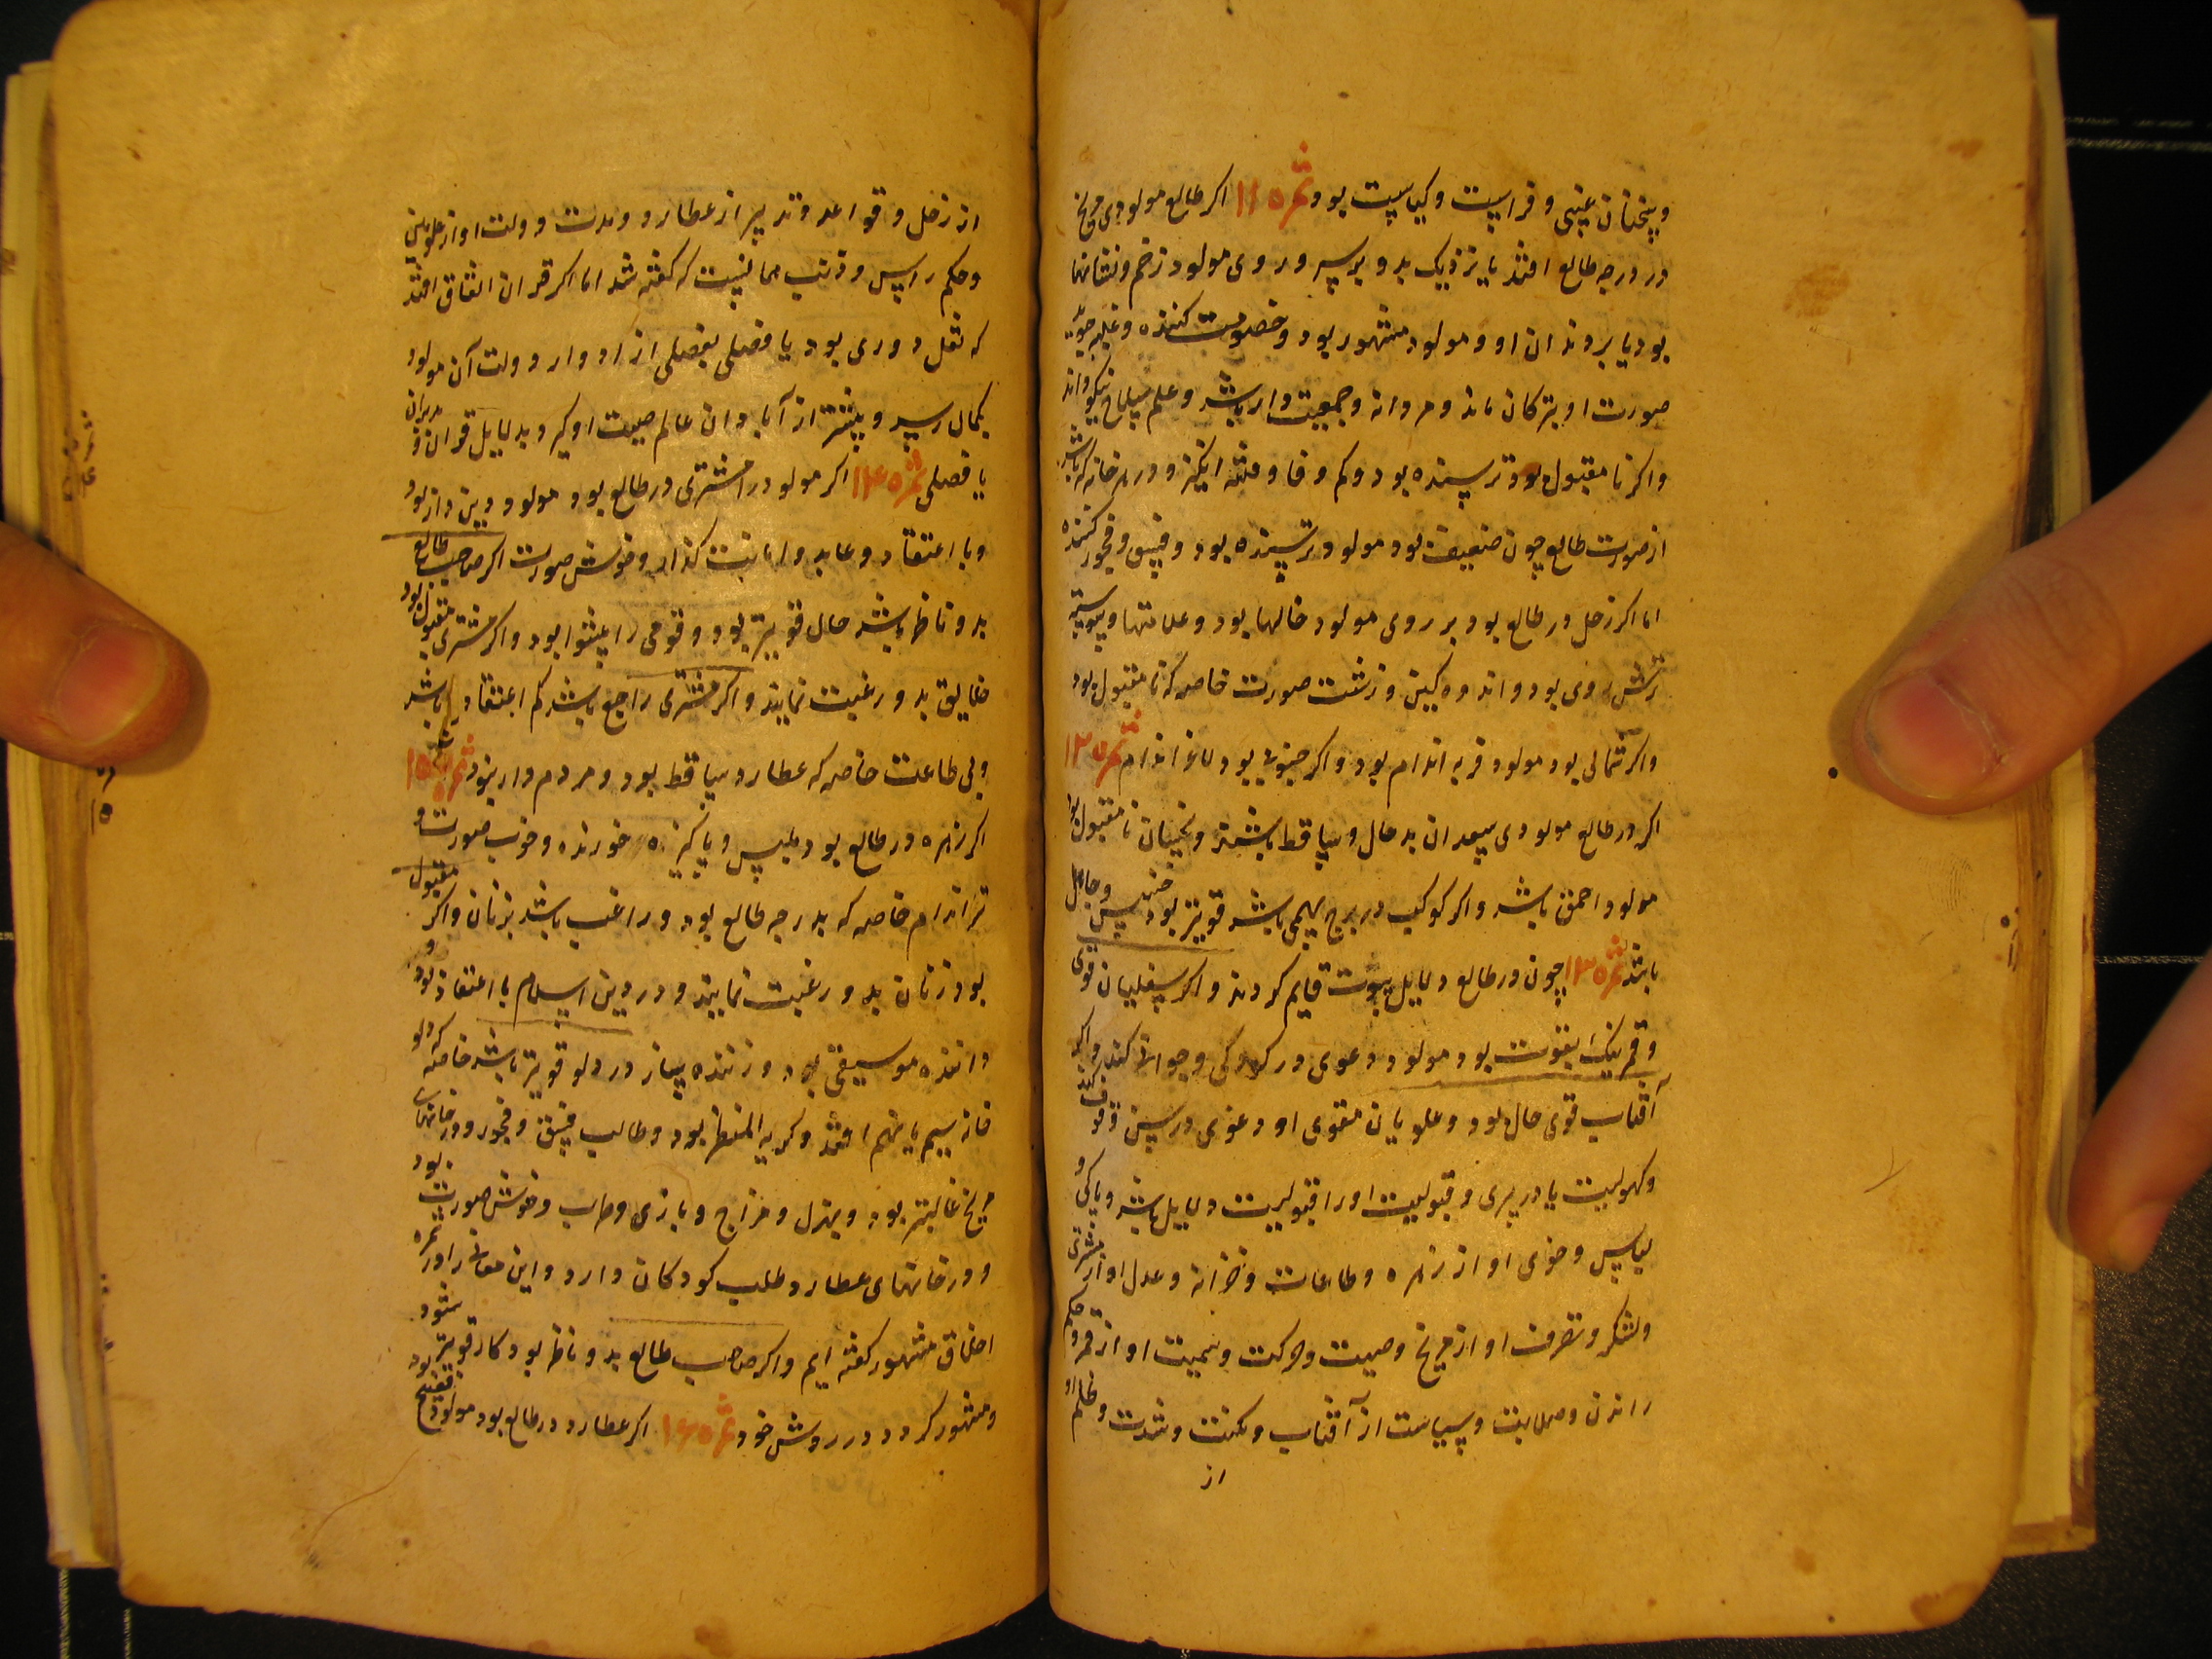 و سخنان غیبی و فراست و کیاست بود ثمره ۱۱ اکر طالع مولودی مریخ
در درجه طالع افتد یا نزدیک بدو بر سر و روی مولود زخم و نشانها
بود یا بر دندان او و مولود مشهور بود و خصومت کننده و غلبه جوید
صورت او بترکان ماند و مردانه و جمعیت دار باشد و علم سلاح نیکو داند
و اکر نا مقبول بود ترسنده بود و کم وفا و فتنه انکیز و در هر خانه که باشد
از صورت طالع چون ضعیف بود مولود ترسنده بود و فسق و فجور کننده
اما اکر زحل در طالع بود بر روی مولود خالها بود و علامتها و پیوسته
ترش روی بود و اندوه کین و زشت صورت خاصه که نا مقبول بود
و اکر شمالی بود مولود فربه اندام بود و اکر جنوبی بود لاغر اندام ثمره ۱۲
اکر در طالع مولودی سعدان بد حال و ساقط باشند و نحسان نا مقبول بود
مولود احمق باشد و اکر کوکب در برج بهیمی باشد قویتر بود خسیس و جاهل
باشد ثمره ۱۳ چون در طالع دلایل بیوت قایم کردند و اکر سفلیان قوی
و قمر نیک بقوت بود مولود دعوی در کودکی و جوانی کند و اکر
آفتاب قوی حال بود و علویان مقوی او دعوی در سن وقوف کند
و کهولیت یا در پیری و قبولیت او را قبولیت دلایل باشد و پاکی و
لباس و خوی او از زهره و طاعات و خزانه و عدل او از مشتری
و لشکر و تصرف او از مریخ و صیت و حرکت و سمیت او از قمر و حکم
راندن و صلابت و سیاست از آفتاب و مکنت و شدت و ظلم او
از
از زحل و قواعد و تدبیر از عطارد و مدت دولت او از علویین
و حکم راس و ذنب همانست که کفته شد اما اکر قران اتفاق افتد
که نقل دوری بود یا فصلی بفصلی از ادوار دولت آن مولود
بکمال رسد و بیشتر از آبادان عالم صیت او کیرد بدلایل قران و مدیران
یا فصلی ثمره ۱۴ اکر مولود را مشتری در طالع بود مولود دین دار بود
و با اعتقاد و عابد و امانت کذار و خوش صورت اکر صاحب طالع
بدو ناظر باشد حال قویتر بود و قومی را پیشوا بود و اکر مشتری مقبول بود
خلایق بدو رغبت نمایند و اکر مشتری راجع باشد کم اعتقاد باشد
و بی طاعت خاصه که عطارد ساقط بود و مردم دار بود ثمره ۱۵
اکر زهره در طالع بود ملبس و پاکیزه خورنده و خوب صورت و
تر اندام خاصه که بدرجه طالع بود و راغب باشد بزنان و اکر مقبول
بود زنان بدو رغبت نمایند و در دین اسلام با اعتقاد بود و
داننده موسیقی بود و زننده ساز در دلو قویتر باشد خاصه که دلو
خانه سیم یا نهم افتد و کریه المنظر بود و طالب فسق و فجور و در خانهای
مریخ غالبتر بود و بهزل و مزاح و بازی و طرب و خوش صورت بود
و در خانهای عطارد طلب کودکان دارد و این معانی را در ثمره
اخلاق مشهور کفته ایم و اکر صاحب طالع بدو ناظر بود کار قویتر شود
و مشهور کردد در روش خود ثمره ۱۶ اکر عطارد در طالع بود مولود فصیح بود